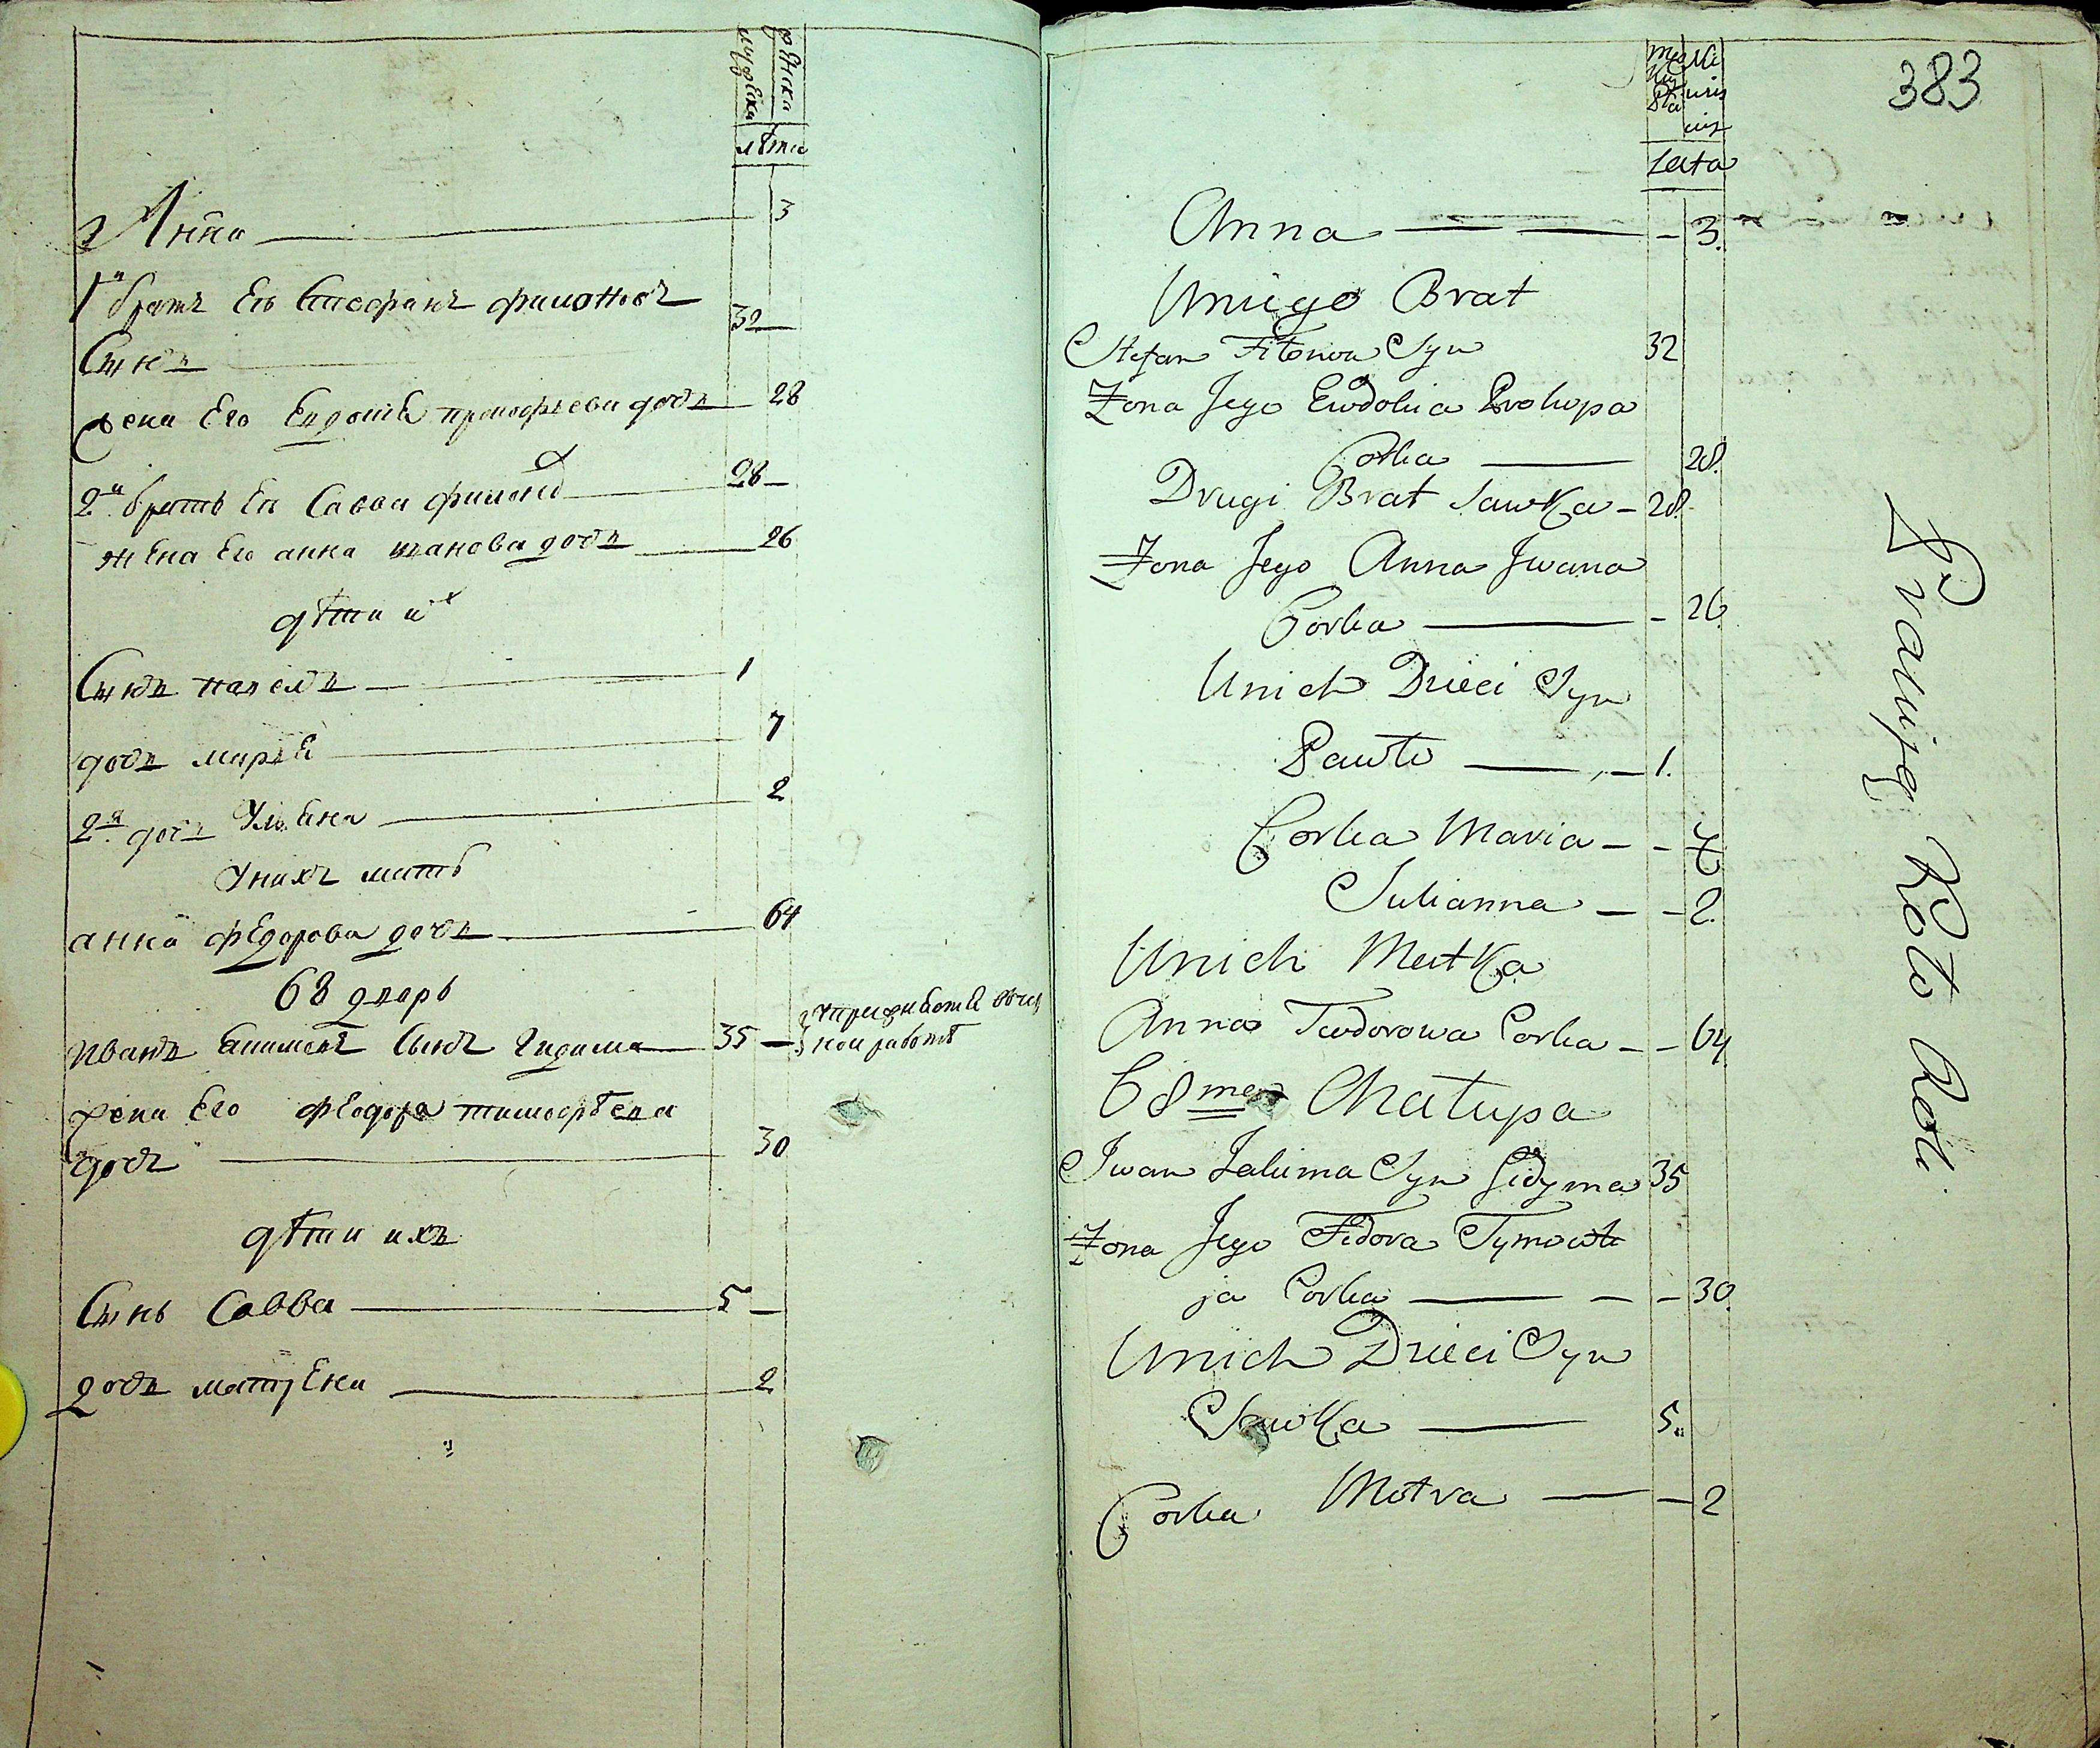 мужеска
женска
лѣта
Анна 3
1й братъ Его Стефанъ филоновъ
Сынъ 32
жена Его Евдокіѣ прокофьева дочь 28
2й братъ Ег Савва филонов 28
жена Его анна иванова дочь 26
дѣти их
Сынъ павелъ 1
дочь марьѣ 7
2я дочь Ульѣна 2
Унихъ мать
анна федорова дочь 64
68 дворъ
иванъ Екимовъ Сынъ Гидима 35
жена Его феодора тимофѣева
дочь 30
дѣти ихъ
Сынъ Савва 5
дочь матрѣна 2
383
Męż
ska
Lata
Anna 3.
Uniego Brat
Stefan Filonow Syn 32
Żona Jego Ewdokia Prokopa
Corka 28.
Drugi Brat Sawka 28.
Żona Jego Anna Jwana
Corka 26
Unich Dzieci Syn
Pawło 1.
Corka Maria 7
Julianna 2.
Unich Matka
Anna Teodorowa Corka 64
68me Chałupa
Jwan Jakima Syn Gidyma 35
Żona Jego Fedora Tymofie
ja Corka 30.
Unich Dzieci Syn
Sawka 5.
Corka Motra 2
Pracuje Koło Roli.